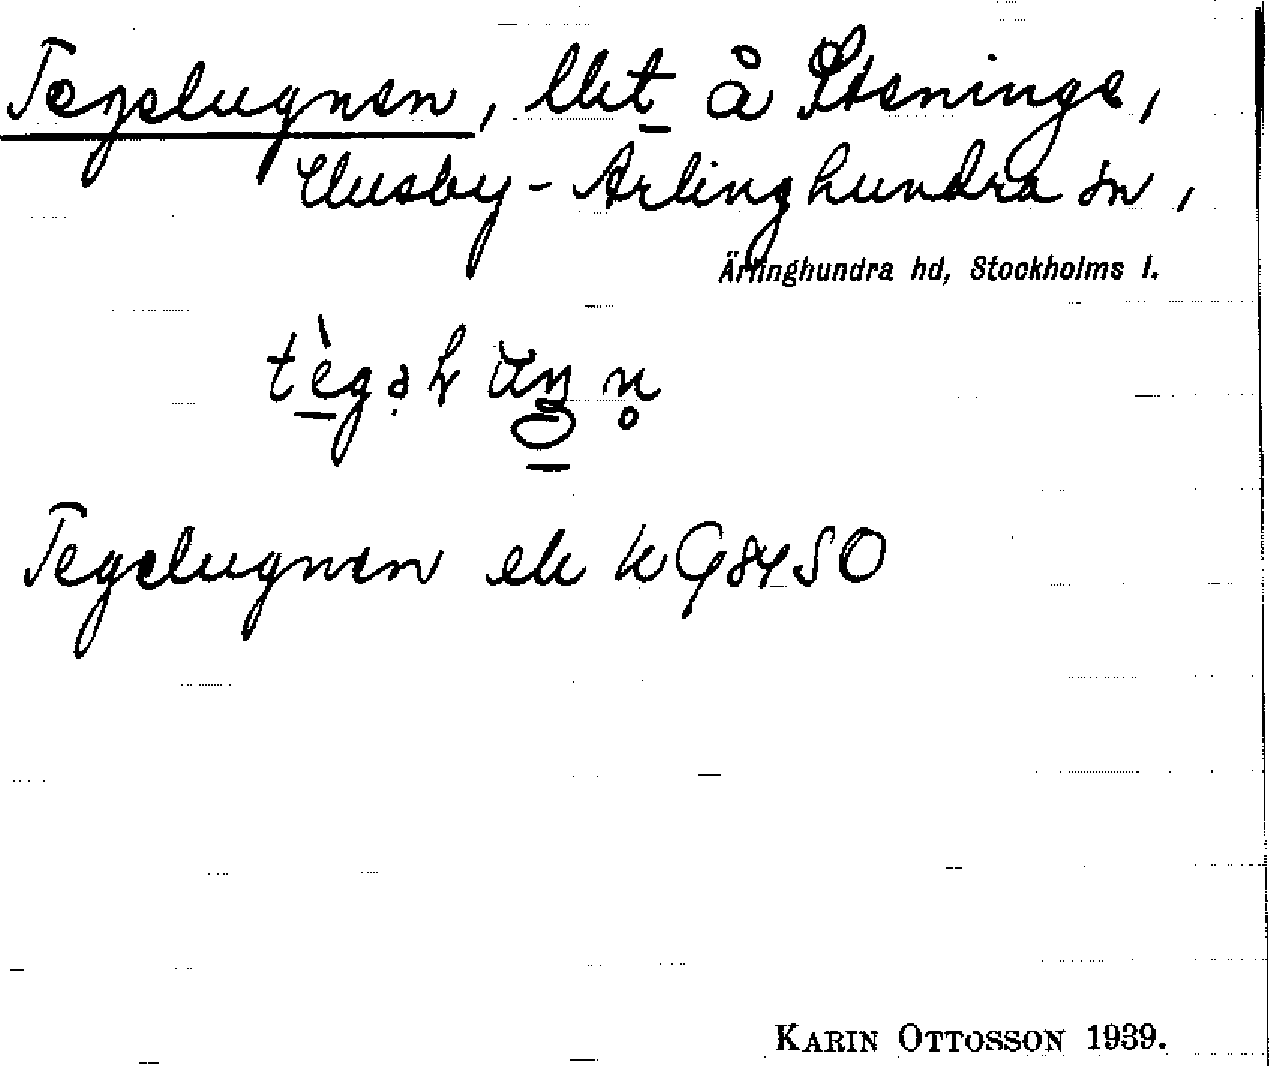 Tegelugnen, lht å Steninge,
Husby-Ärlinghundra sn,
Ärlinghundra hd, Stockholms l.
Tegelugnen ek
KARIN OTTOSSON 1939.